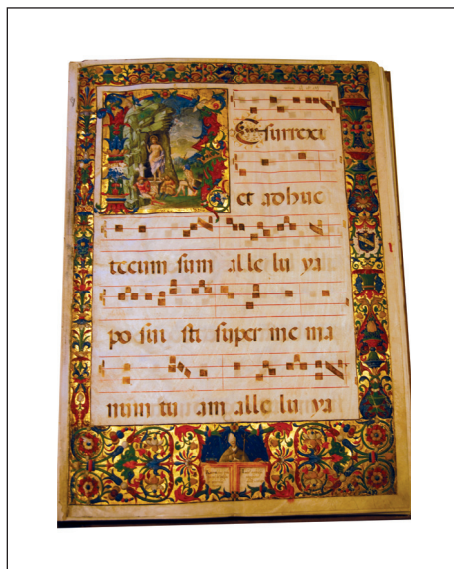 Esurrexi
et adhuc
tecum sum alle lu ya
po sui sti super me ma
num tu am alle lu ya